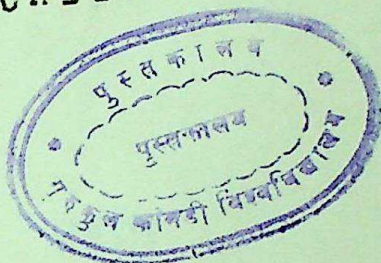 पुस्तकालय
पुस्तकालय
गुरुकुल काँगड़ी विश्वविद्यालय